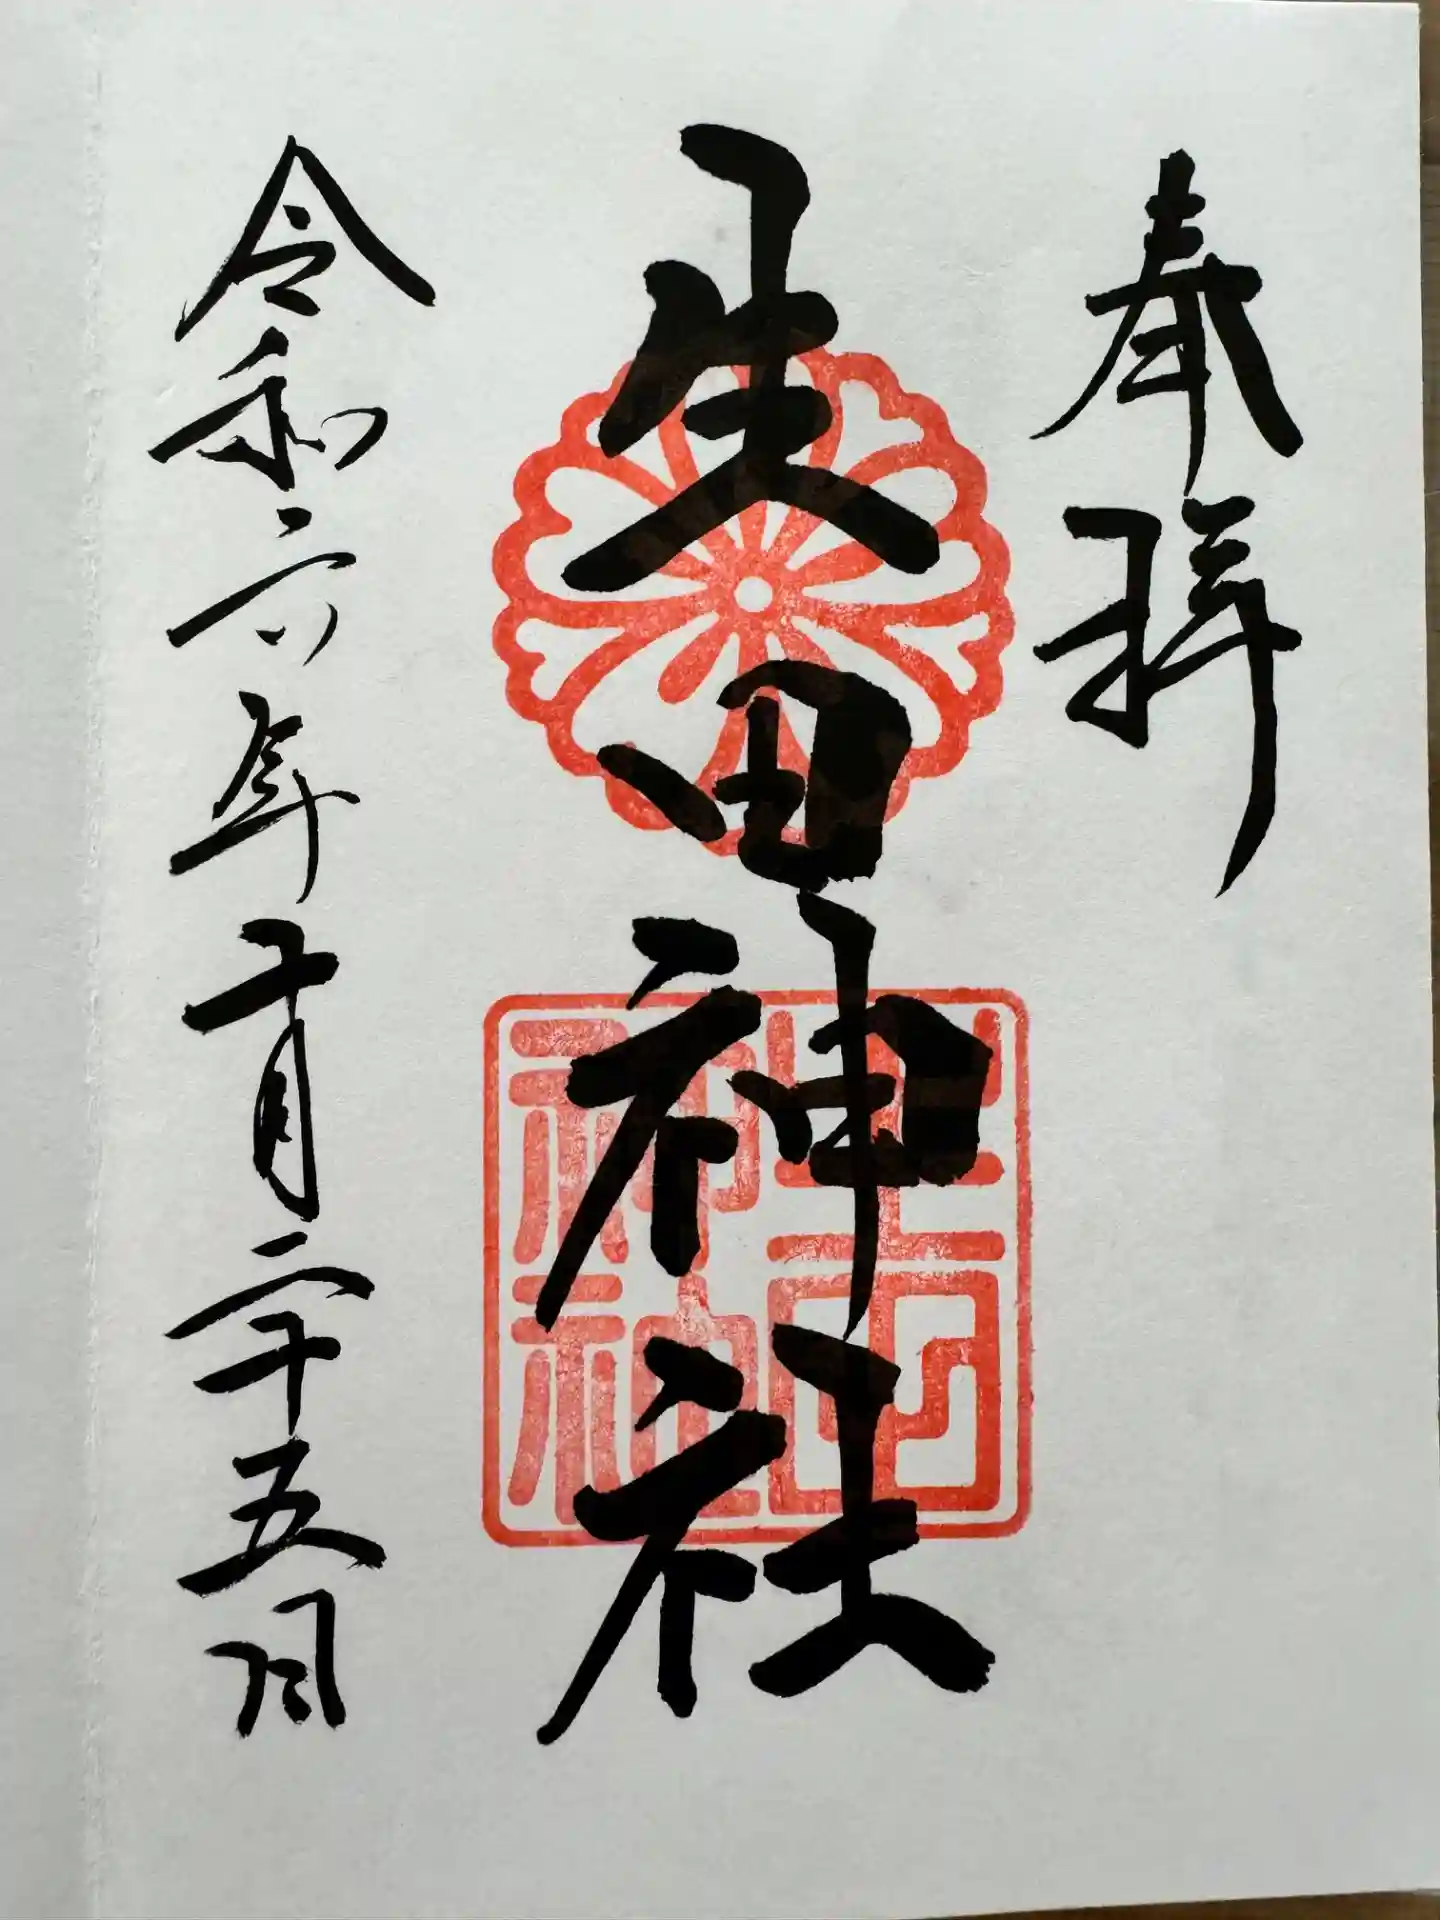 奉拝
生田神社
令和六年十月二十五日
生田神社